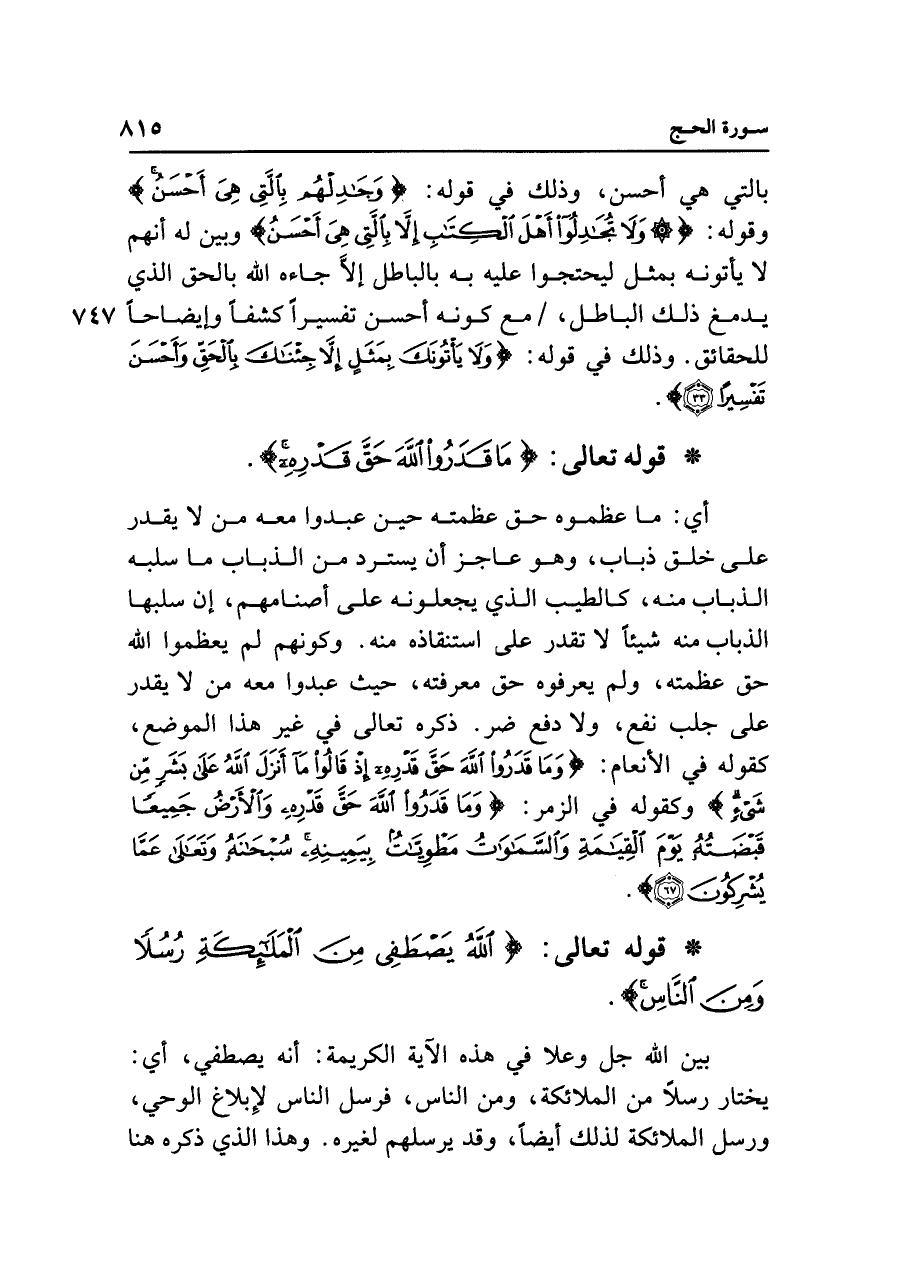 سورة الحج ٨١٥
بالتي هي أحسن، وذلك في قوله: ﴿ وَجَٰدِلْهُم بِٱلَّتِى هِىَ أَحْسَنُۚ ﴾
وقوله: ﴿ ۞ وَلَا تُجَٰدِلُوٓا۟ أَهْلَ ٱلْكِتَٰبِ إِلَّا بِٱلَّتِى هِىَ أَحْسَنُ﴾ وبين له أنهم
لا يأتونه بمثل ليحتجوا عليه به بالباطل إلاَّ جاءه الله بالحق الذي
يدمغ ذلك الباطل، / مع كونه أحسن تفسيراً كشفاً وإيضاحاً ٧٤٧
للحقائق. وذلك في قوله: ﴿ وَلَا يَأْتُونَكَ بِمَثَلٍ إِلَّا جِئْنَٰكَ بِٱلْحَقِّ وَأَحْسَنَ
تَفْسِيرًا ٣٣﴾.
* قوله تعالى: ﴿ مَا قَدَرُوا۟ ٱللَّهَ حَقَّ قَدْرِهِۦٓۚ﴾.
أي: ما عظموه حق عظمته حين عبدوا معه من لا يقدر
على خلق ذباب، وهو عاجز أن يسترد من الذباب ما سلبه
الذباب منه، كالطيب الذي يجعلونه على أصنامهم، إن سلبها
الذباب منه شيئاً لا تقدر على استنقاذه منه. وكونهم لم يعظموا الله
حق عظمته، ولم يعرفوه حق معرفته، حيث عبدوا معه من لا يقدر
على جلب نفع، ولا دفع ضر. ذكره تعالى في غير هذا الموضع،
كقوله في الأنعام: ﴿ وَمَا قَدَرُوا۟ ٱللَّهَ حَقَّ قَدْرِهِۦٓ إِذْ قَالُوا۟ مَآ أَنزَلَ ٱللَّهُ عَلَىٰ بَشَرٍ مِّن
شَىْءٍۗ ﴾ وكقوله في الزمر: ﴿ وَمَا قَدَرُوا۟ ٱللَّهَ حَقَّ قَدْرِهِۦ وَٱلْأَرْضُ جَمِيعًا
قَبْضَتُهُۥ يَوْمَ ٱلْقِيَٰمَةِ وَٱلسَّمَٰوَٰتُ مَطْوِيَّٰتٌۢ بِيَمِينِهِۦۚ سُبْحَٰنَهُۥ وَتَعَٰلَىٰ عَمَّا
يُشْرِكُونَ ٦٧﴾.
* قوله تعالى: ﴿ ٱللَّهُ يَصْطَفِى مِنَ ٱلْمَلَٰٓئِكَةِ رُسُلًا
وَمِنَ ٱلنَّاسِۚ﴾.
بين الله جل وعلا في هذه الآية الكريمة: أنه يصطفي، أي:
يختار رسلاً من الملائكة، ومن الناس، فرسل الناس لإبلاغ الوحي،
ورسل الملائكة لذلك أيضاً، وقد يرسلهم لغيره. وهذا الذي ذكره هنا